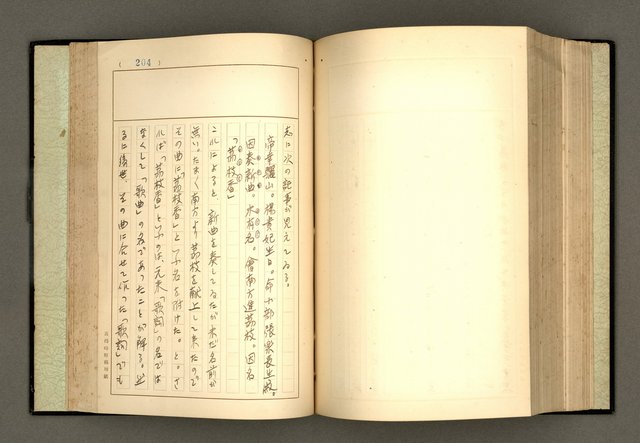 204
志に次の記事が見えてゐる。
帝幸驪山。楊貴妃生日。命小部張樂長生殿。
因奏新曲。未有名。會南方進荔枝。因名
「荔枝香」
これによると、新曲を奏してゐたが未だ名前が
無い。たまたま南方より荔枝を献上して来たので、
その曲に「荔枝香」といふ名を附けた。と。さ
れば「荔枝香」といふのは、元来「歌詞」の名では
なくして、「歌曲」の名であったことが解る。
るに後世、その曲に合せて作った「歌詞」でも